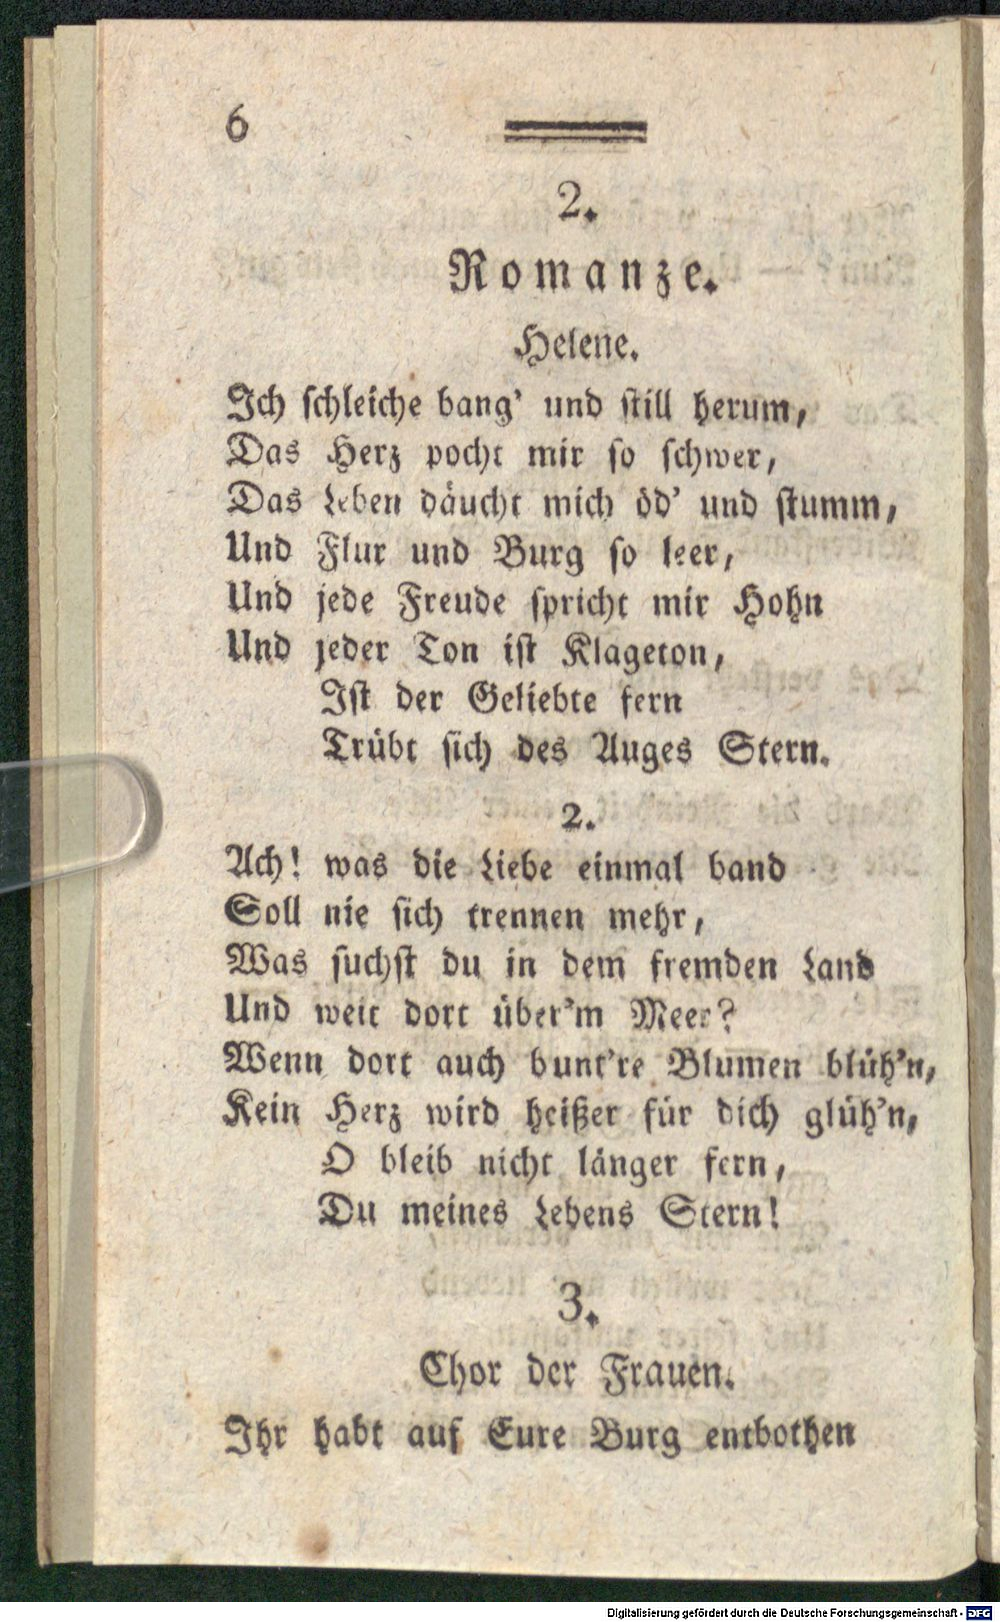 6
2.
Romanze.
Helene.
Ich schleiche bang' und still herum,
Das Herz pocht mir so schwer,
Das Leben däucht mich öd' und stumm,
Und Flur und Burg so leer,
Und jede Freude spricht mir Hohn
Und jeder Ton ist Klageton,
Ist der Geliebte fern
Trübt sich des Auges Stern.
2.
Ach! was die Liebe einmal band
Soll nie sich trennen mehr,
Was suchst du in dem fremden Land
Und weit dort über'm Meer?
Wenn dort auch bunt're Blumen blüh'n,
Kein Herz wird heißer für dich glüh'n,
O bleib nicht länger fern,
Du meines Lebens Stern!
3.
Chor der Frauen.
Ihr habt auf Eure Burg entbothen
Digitalisierung gefördert durch die Deutsche Forschungsgemeinschaft - DFG